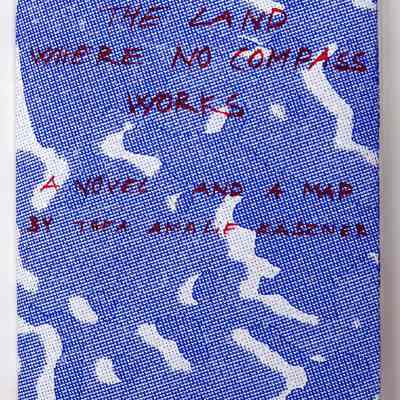 THE LAND
WHERE NO COMPASS
WORKS
A NOVEL AND A MAP
BY AMALIE KASZNER